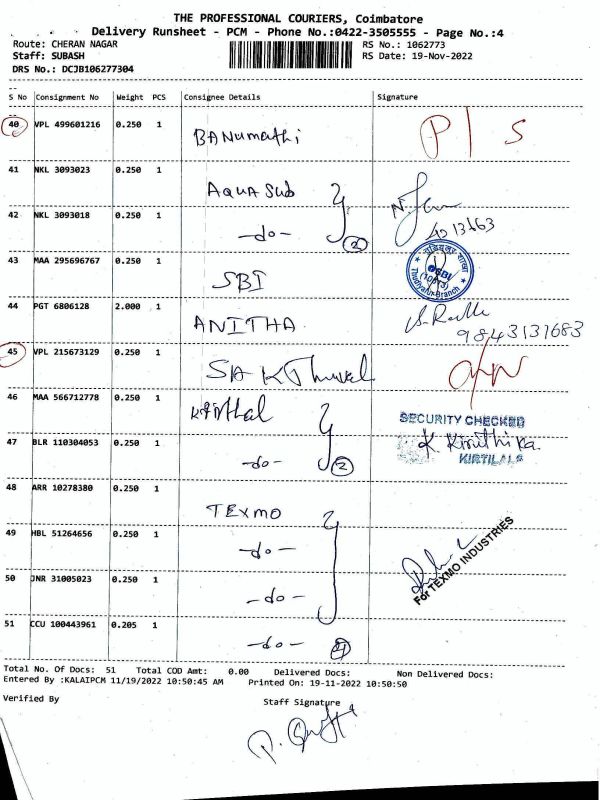 THE PROFESSIONAL COURIERS, Coimbatore
Delivery Runsheet - PCM - Phone No.:0422-3505555 - Page No.:4
Route: CHERAN NAGAR RS No.: 1062773
Staff: SUBASH RS Date: 19-Nov-2022
DRS No.: DCJB106277304
S No Consignment No Weight PCS Consignee Details Signature
40 VPL 499601216 0.250 1 BANumathi P/S
41 NKL 3093023 0.250 1 AQUA Sub
42 NKL 3093018 0.250 1 -do- 2
43 MAA 295696767 0.250 1 SBI
44 PGT 6806128 2.000 1 ANITHA
9843131683
45 VPL 215673129 0.250 1 SAKThuvel
46 MAA 566712778 0.250 1 SECURITY CHECKED
K Kirithika
47 BLR 110304053 0.250 1 -do- 2 KIRTILALS
48 ARR 10278380 0.250 1 TEXMO
49 HBL 51264656 0.250 1 -do-
50 JNR 31005023 0.250 1 -do- For TEXMO INDUSTRIES
51 CCU 100443961 0.205 1 -do- 4
Total No. Of Docs: 51 Total COD Amt: 0.00 Delivered Docs: Non Delivered Docs:
Entered By :KALAIPCM 11/19/2022 10:50:45 AM Printed On: 19-11-2022 10:50:50
Verified By Staff Signature